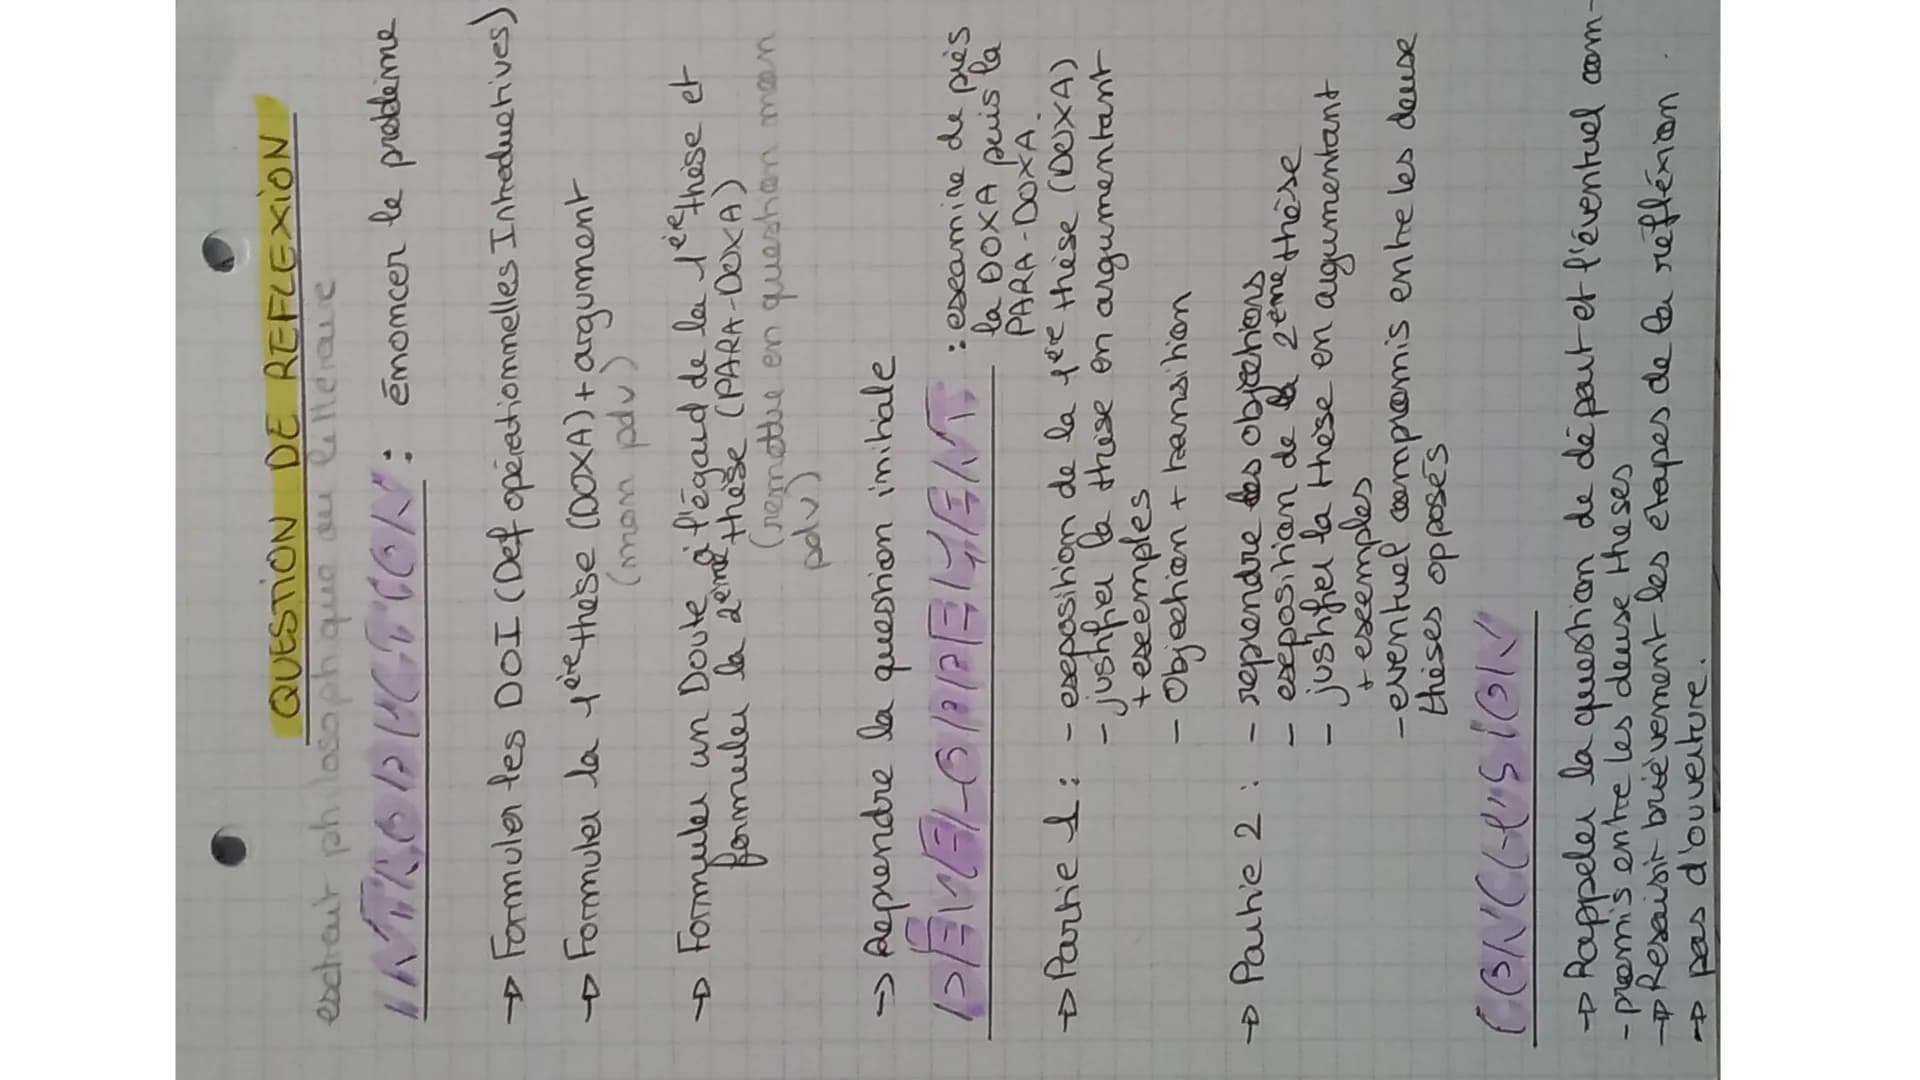 QUESTION DE REFLEXION
extrait philosophique ou littéraire
INTRODUCTION : énoncer le problème
→ Formuler les DOI (Def opérationnelles Introductives)
→ Formuler la 1ère thèse (DOXA) + argument
(mon pdv)
→ Formuler un Doute à l'égard de la 1ère thèse et
formuler la 2ème thèse (PARA-DOXA)
(remettre en question mon
pdv)
→ Reprendre la question initiale
DÉVELOPPEMENT : examine de près
la DOXA puis la
PARA-DOXA.
→ Partie 1 : - exposition de la 1ère thèse (DOXA)
- justifier la these en argumentant
+ exemples
- Objection + transition
→ Partie 2 : - reprendre les objections
- exposition de la 2ème thèse
- justifier la thèse en argumentant
+ exemples
- eventuel compromis entre les deux
thèses opposés
CONCLUSION
→ Rappeler la question de départ et l'éventuel com-
-promis entre les deux theses
→ Resaisir brièvement les étapes de la réfléxion.
→ pas d'ouverture.